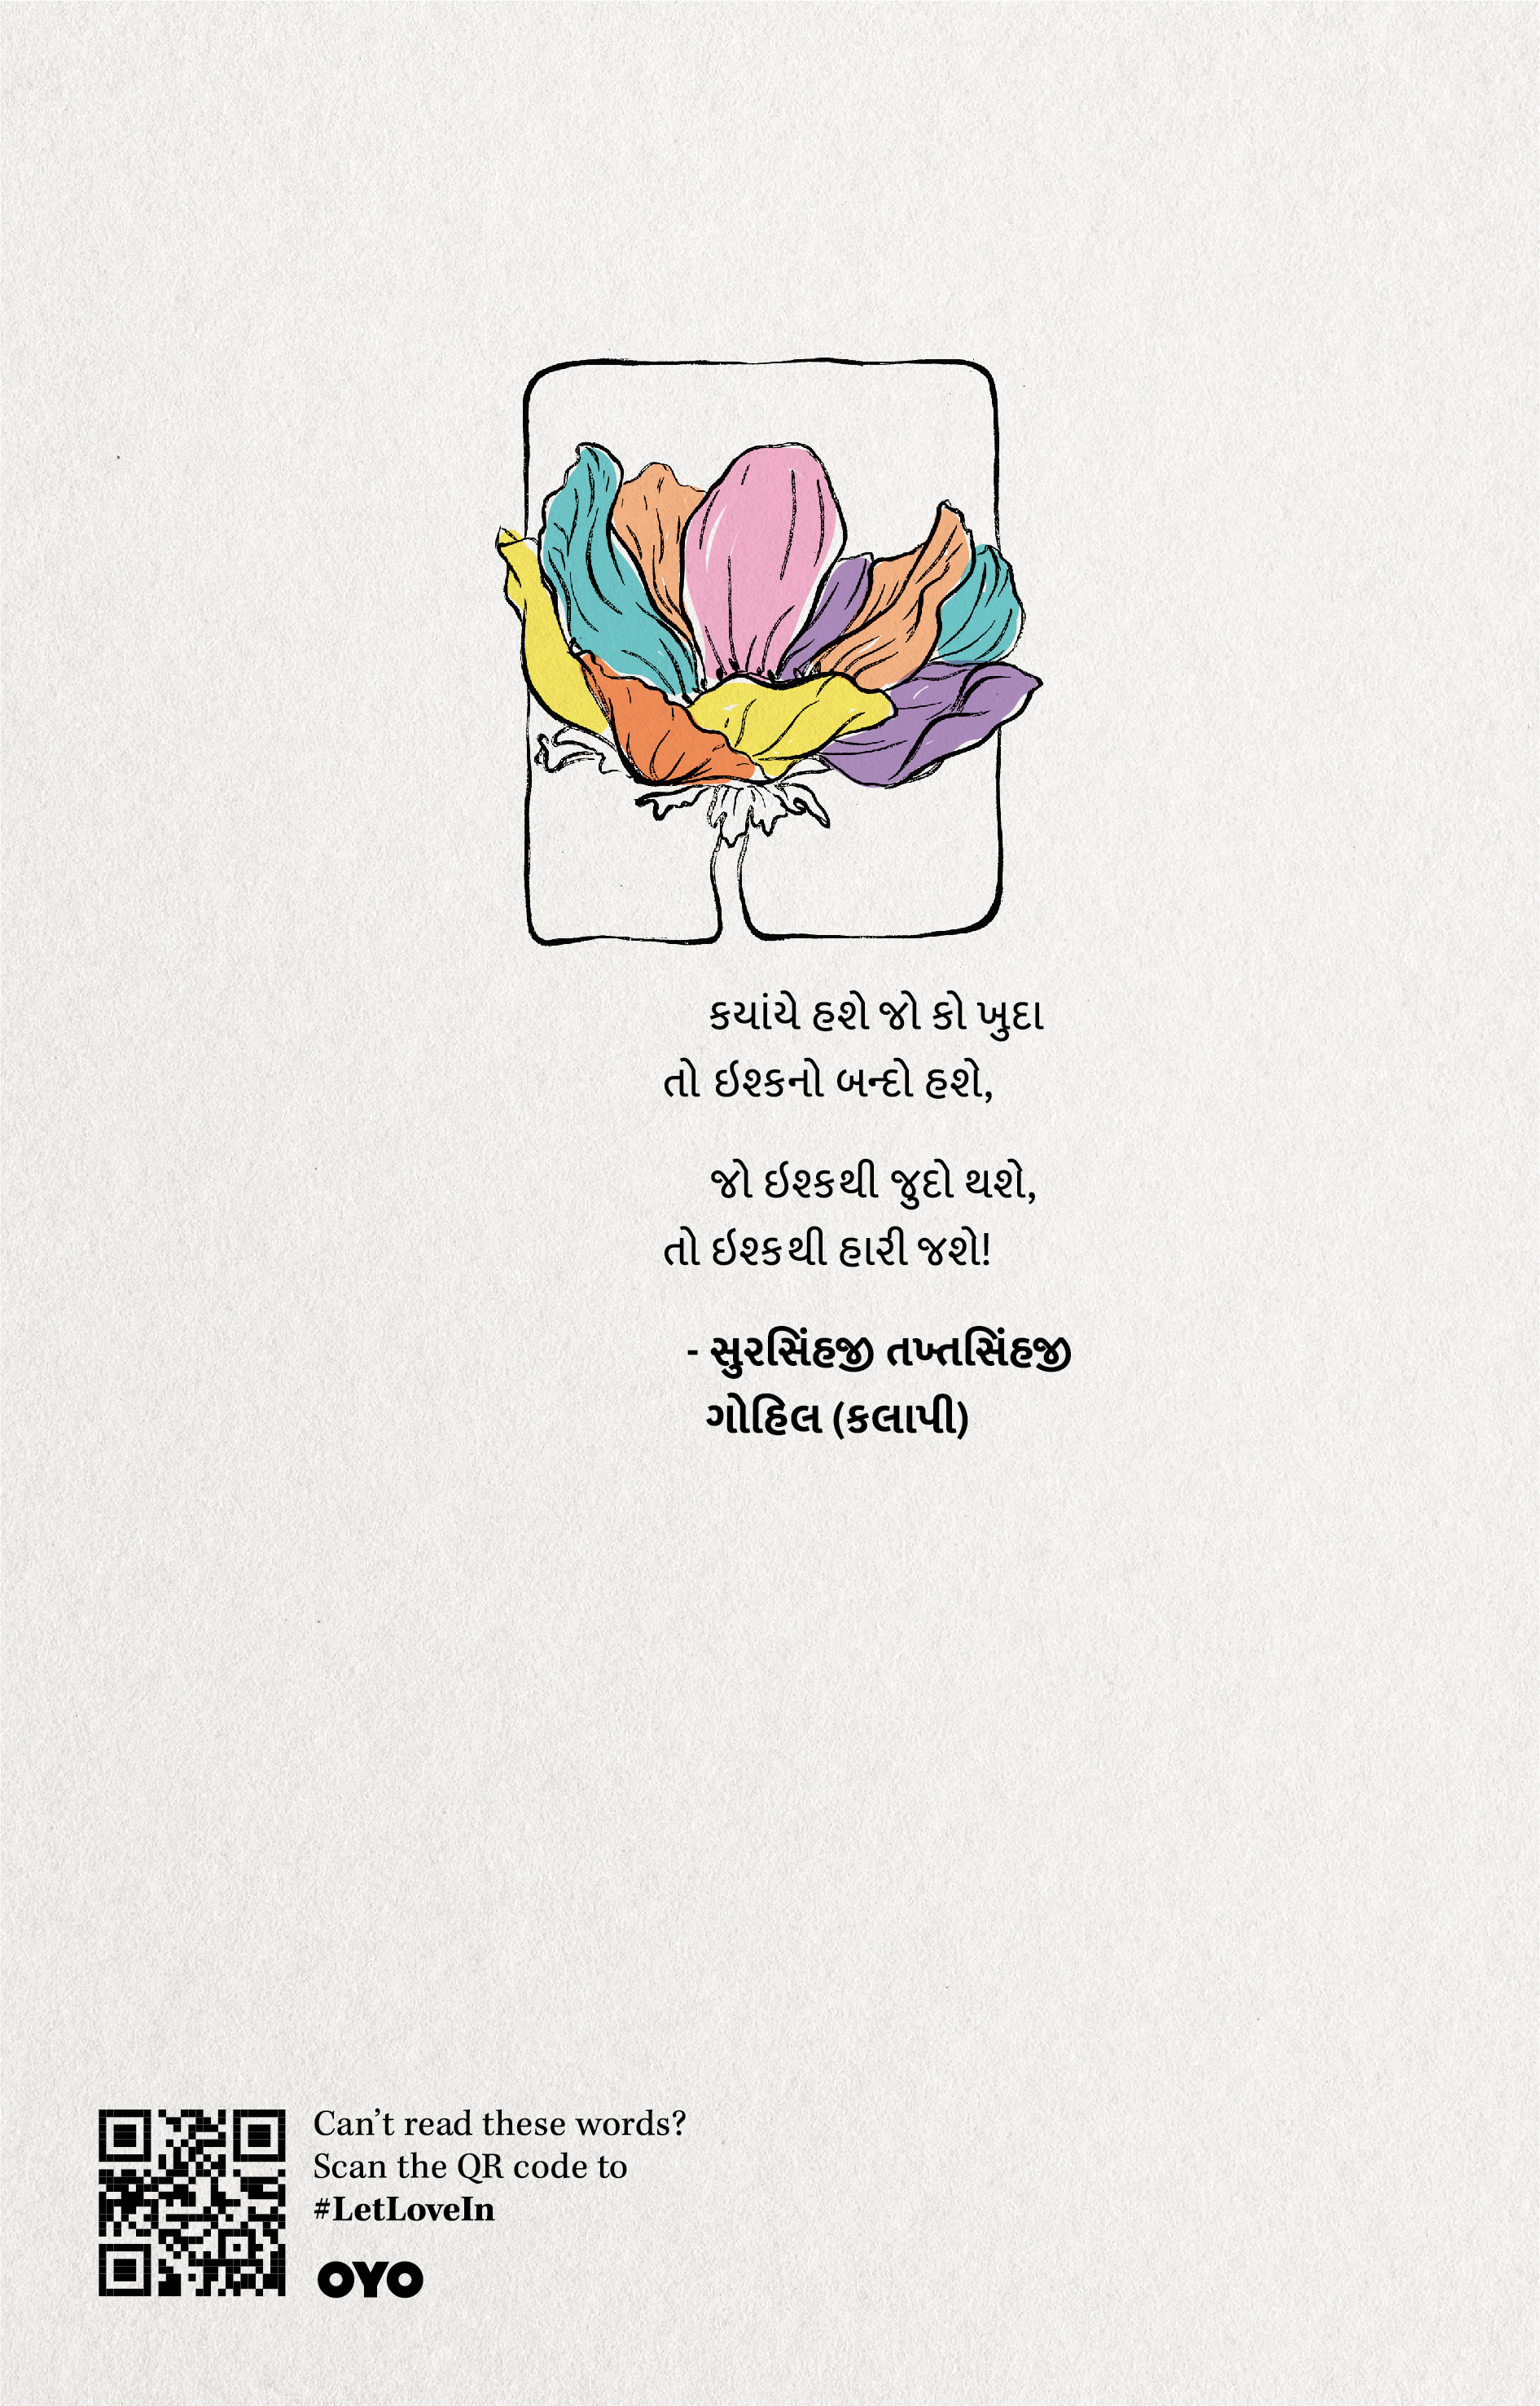 કયાંયે હશે જો કો ખુદા
તો ઇશ્કનો બન્દો હશે,
જો ઇશ્કથી જુદો થશે,
તો ઇશ્કથી હારી જશે!
- સુરસિંહજી તખ્તસિંહજી
ગોહિલ (કલાપી)
Can’t read these words?
Scan the QR code to
#LetLoveIn
OYO